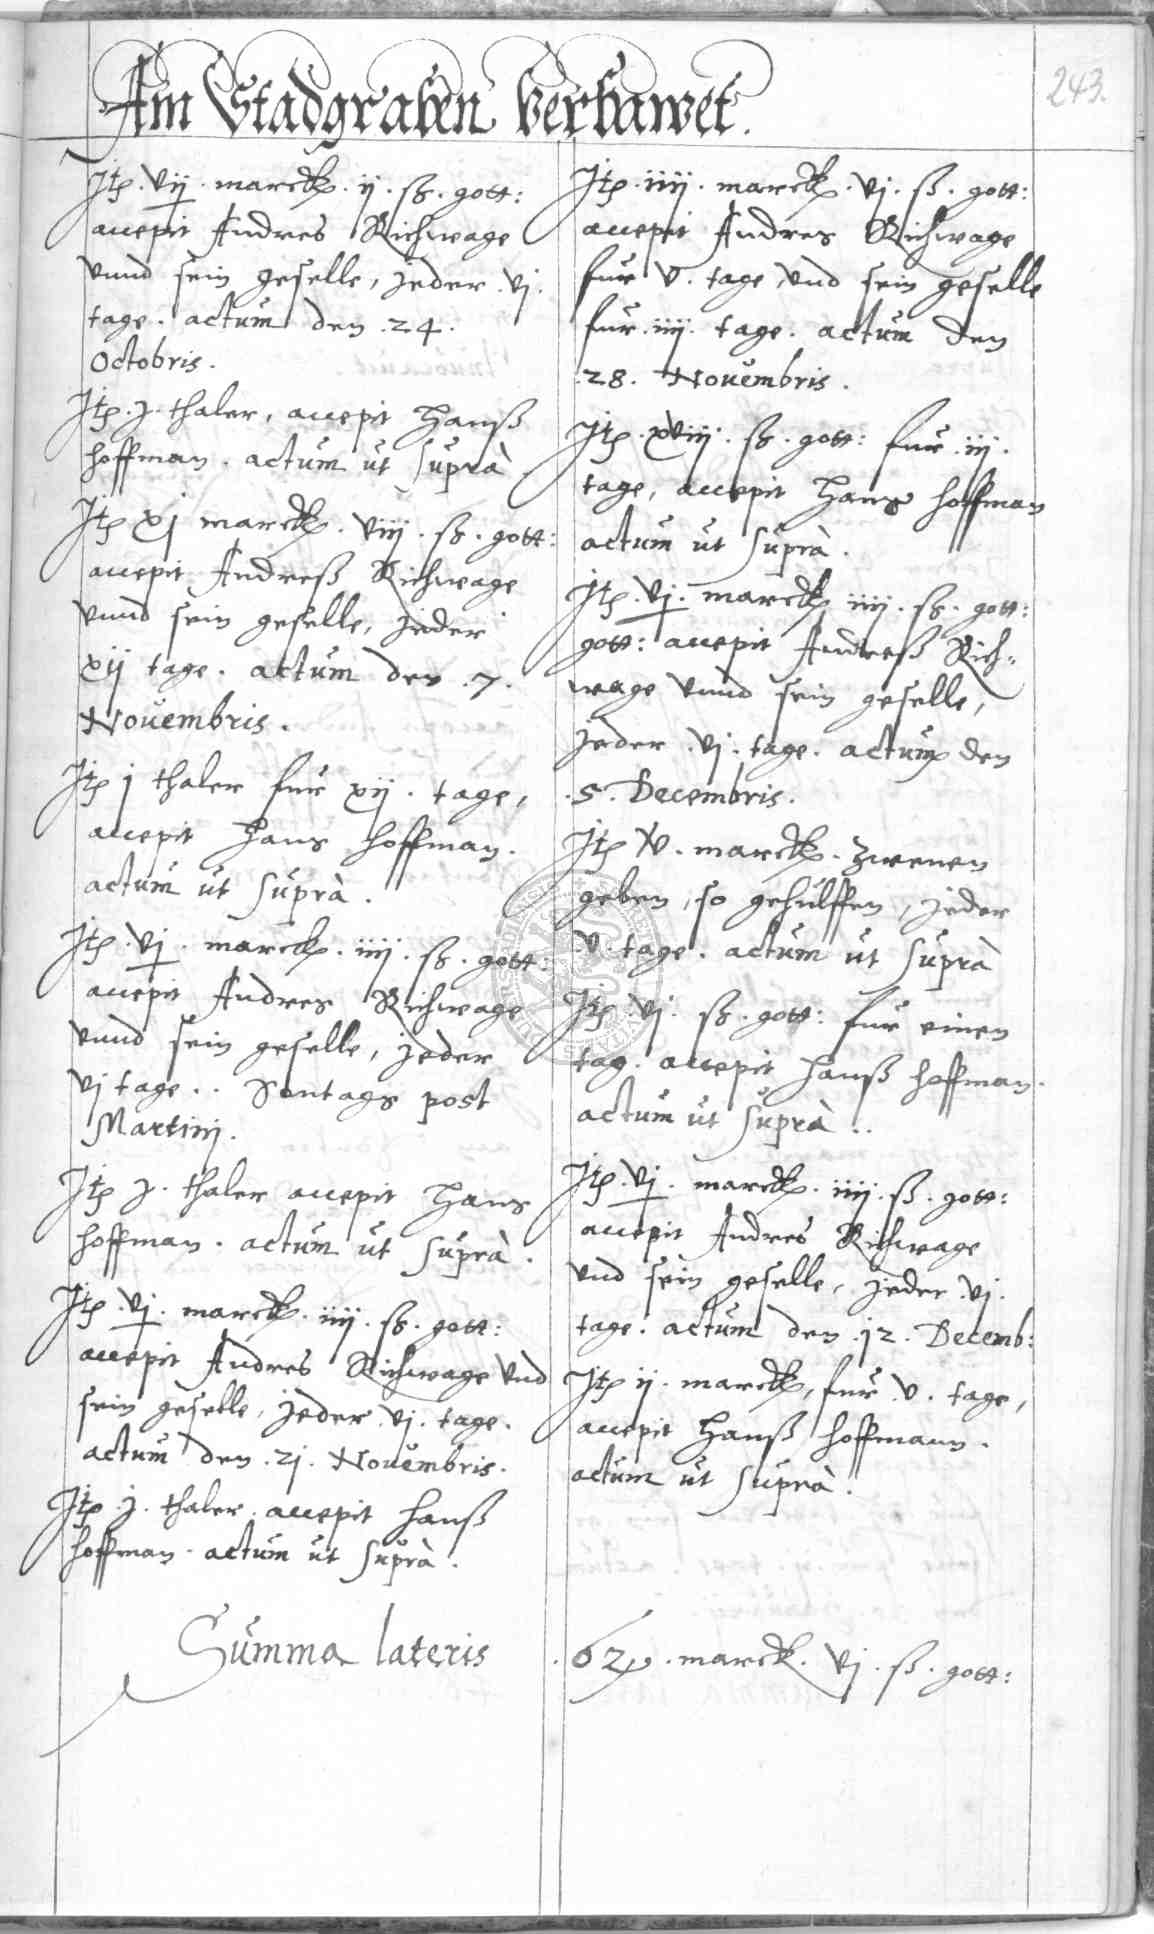 Am Stadgraben verbawet.
243.
Itp. vij. marckp. ij. sg. gott:
accepit Andres Richwage
vnnd sein geselle, jeder. vj.
tage. actum den .24.
Octobris.
Itp. j. thaler, accepit Hanß
hoffman. actum ut suprà
Itp xj marckp. viij. sg. gott:
accepit Andreß Richwage
vnnd sein geselle, jeder
xij tage. actum den .7.
Nouembris.
Itp j thaler fur xij. tage,
accepit Hans hoffman.
actum ut suprà.
Itp. vj. marckp. iiij. sg. gott:
accepit Andres Richwage
vnnd sein geselle, jeder
vj tage.. Sontags post
Martinj.
Itp j. thaler accepit Hans
hoffman. actum ut suprà.
Itp. vj. marckp. iiij. sg. gott:
accepit Andres Richwage vnd
sein geselle, jeder. vj. tage.
actum den .2j. Nouembris.
Itp. j. thaler. accepit hanß
hoffman. actum ut suprà.
Itp. iiij. marckp. vj. ß. gott:
accepit Andres Richwage
fur v. tage, vnd sein geselle
fur. iiij. tage. actum den
.28. Nouembris.
Itp. xviij. sg. gott: fur. iij.
tage, accepit Hans hoffman
actum ut suprà.
Itp. vj. marckp iiij. sg. gott:
gott: accepit Andreß Rich=
wage vnnd sein geselle,
jeder. vj. tage. actum den
.5. Decembris.
Itp v. marckp. zwenen
geben, so gehulffen, jeder
v. tage. actum ut suprà
Itp. vj. sg. gott: fur einen
tag. accepit Hanß hoffman.
actum ut suprà..
Itp. vj. marckp. iiij. ß. gott:
accepit Andres Richwage
vnd sein geselle, jeder. vj.
tage. actum den .j2. Decemb:
Itp ij. marckp, fur v. tage,
accepit Hanß hoffmann.
actum ut suprà.
Summa lateris .62. marckp. vj. ß. gott: